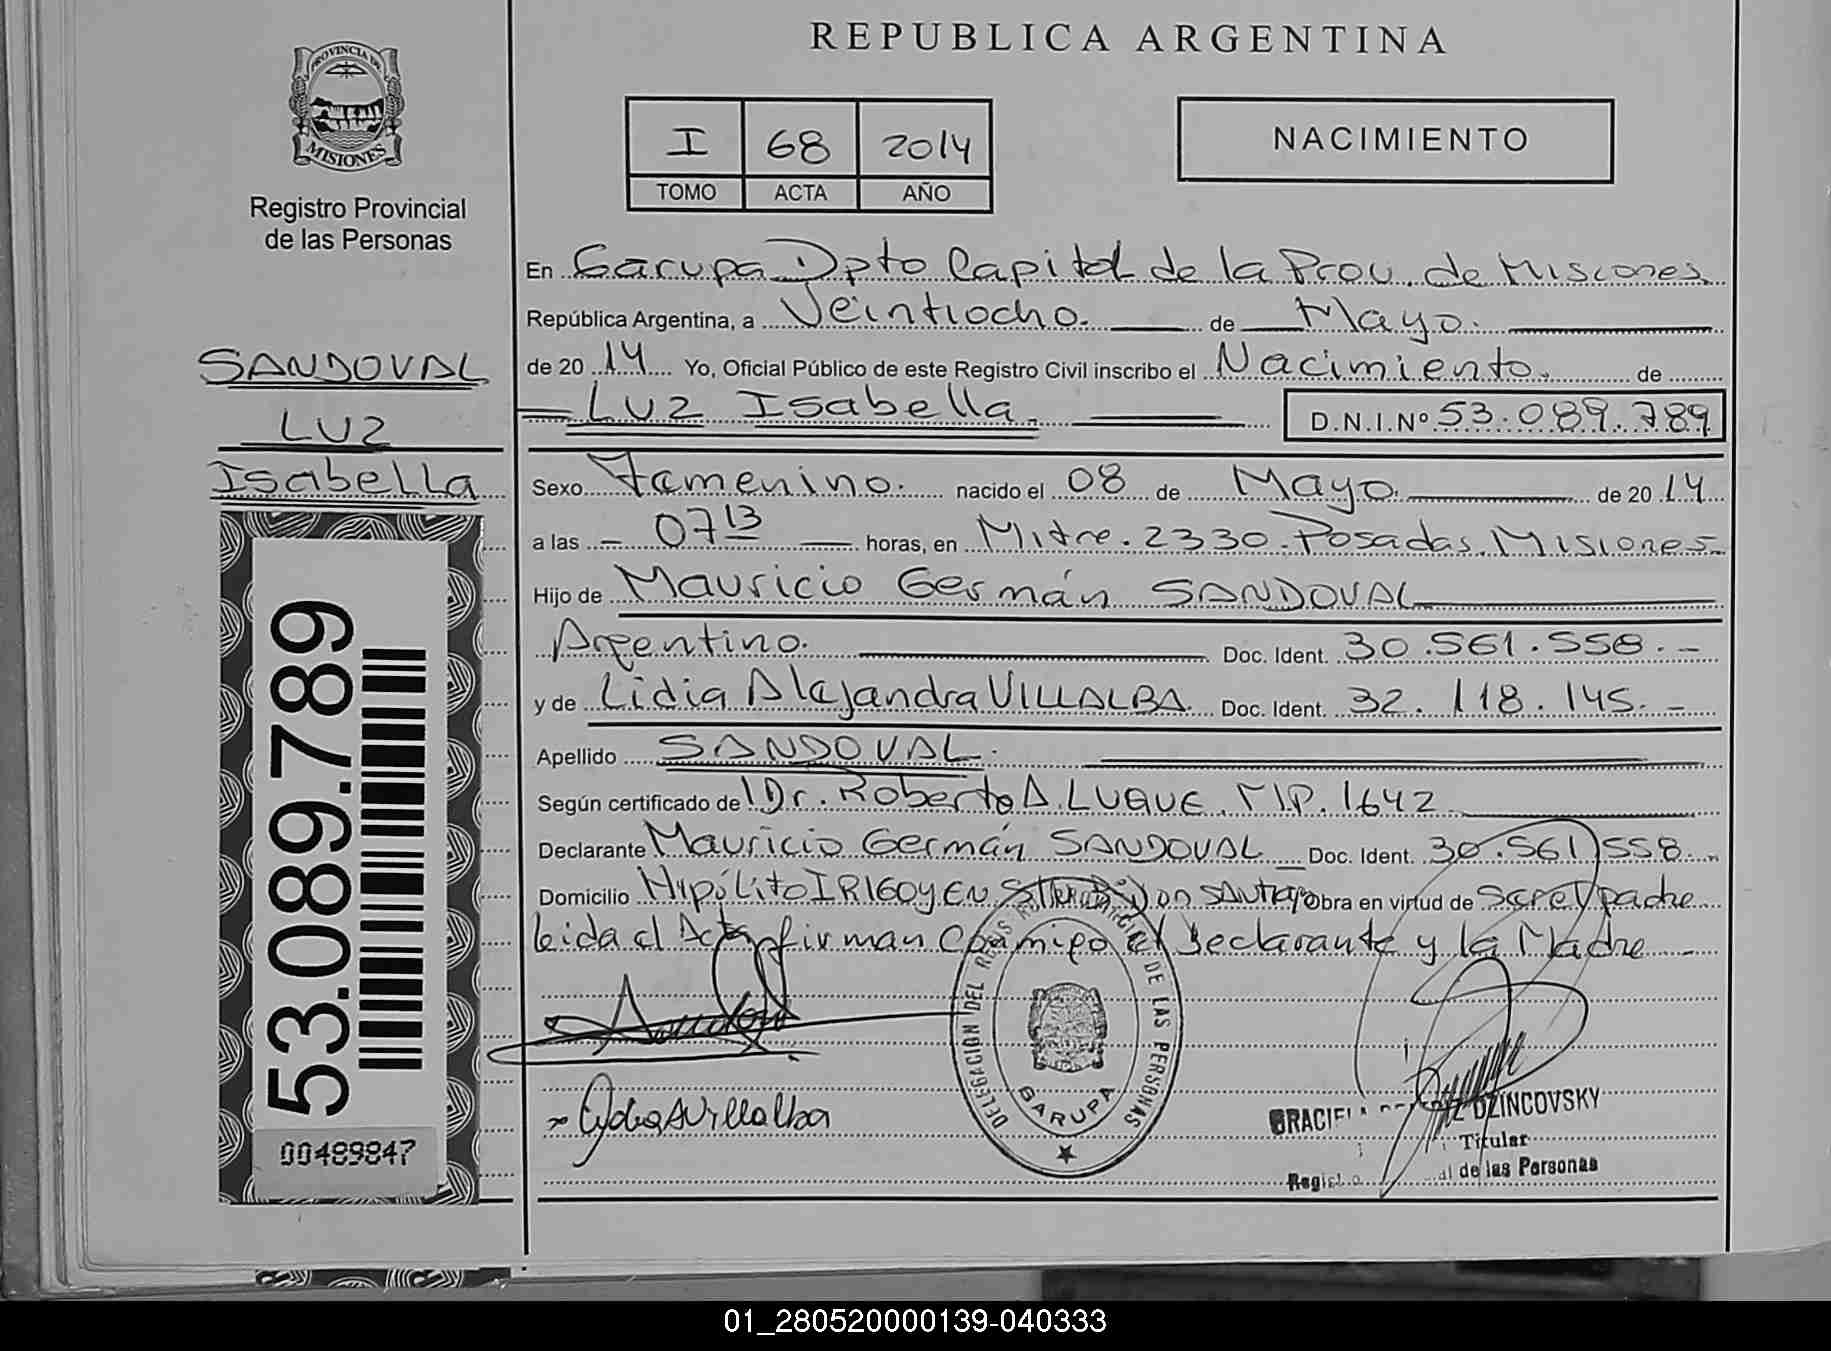 REPUBLICA ARGENTINA
PROVINCIA DE
MISIONES
Registro Provincial
de las Personas
I 68 2014
TOMO ACTA AÑO
NACIMIENTO
En Garupa Dpto Capital de la Prov. de Misiones
República Argentina, a Veintiocho. de Mayo.
de 20 14 Yo, Oficial Público de este Registro Civil inscribo el Nacimiento. de
Luz Isabella. D.N.I.Nº 53.089.789
SANDOVAL
LUZ
Isabella
Sexo Femenino. nacido el 08 de Mayo. de 20 14
a las 07 13 horas, en Mitre. 2330. Posadas. Misiones
Hijo de Mauricio Germán SANDOVAL
Argentino. Doc. Ident. 30.561.558.-
y de Lidia Alejandra VILLALBA Doc. Ident. 32.118.145.-
Apellido SANDOVAL.
Según certificado de Dr. Roberto A. LUQUE. M.P. 1642
Declarante Mauricio Germán SANDOVAL Doc. Ident. 30.561.558.
Domicilio Hipólito IRIGOYEN Obra en virtud de ser el padre
Leida el Acta firman Conmigo el Declarante y la Madre
53.089.789
00489847
DELEGACION DEL DE LAS PERSONAS
GARUPA
DZINCOVSKY
Titular
de las Personas
01_280520000139-040333